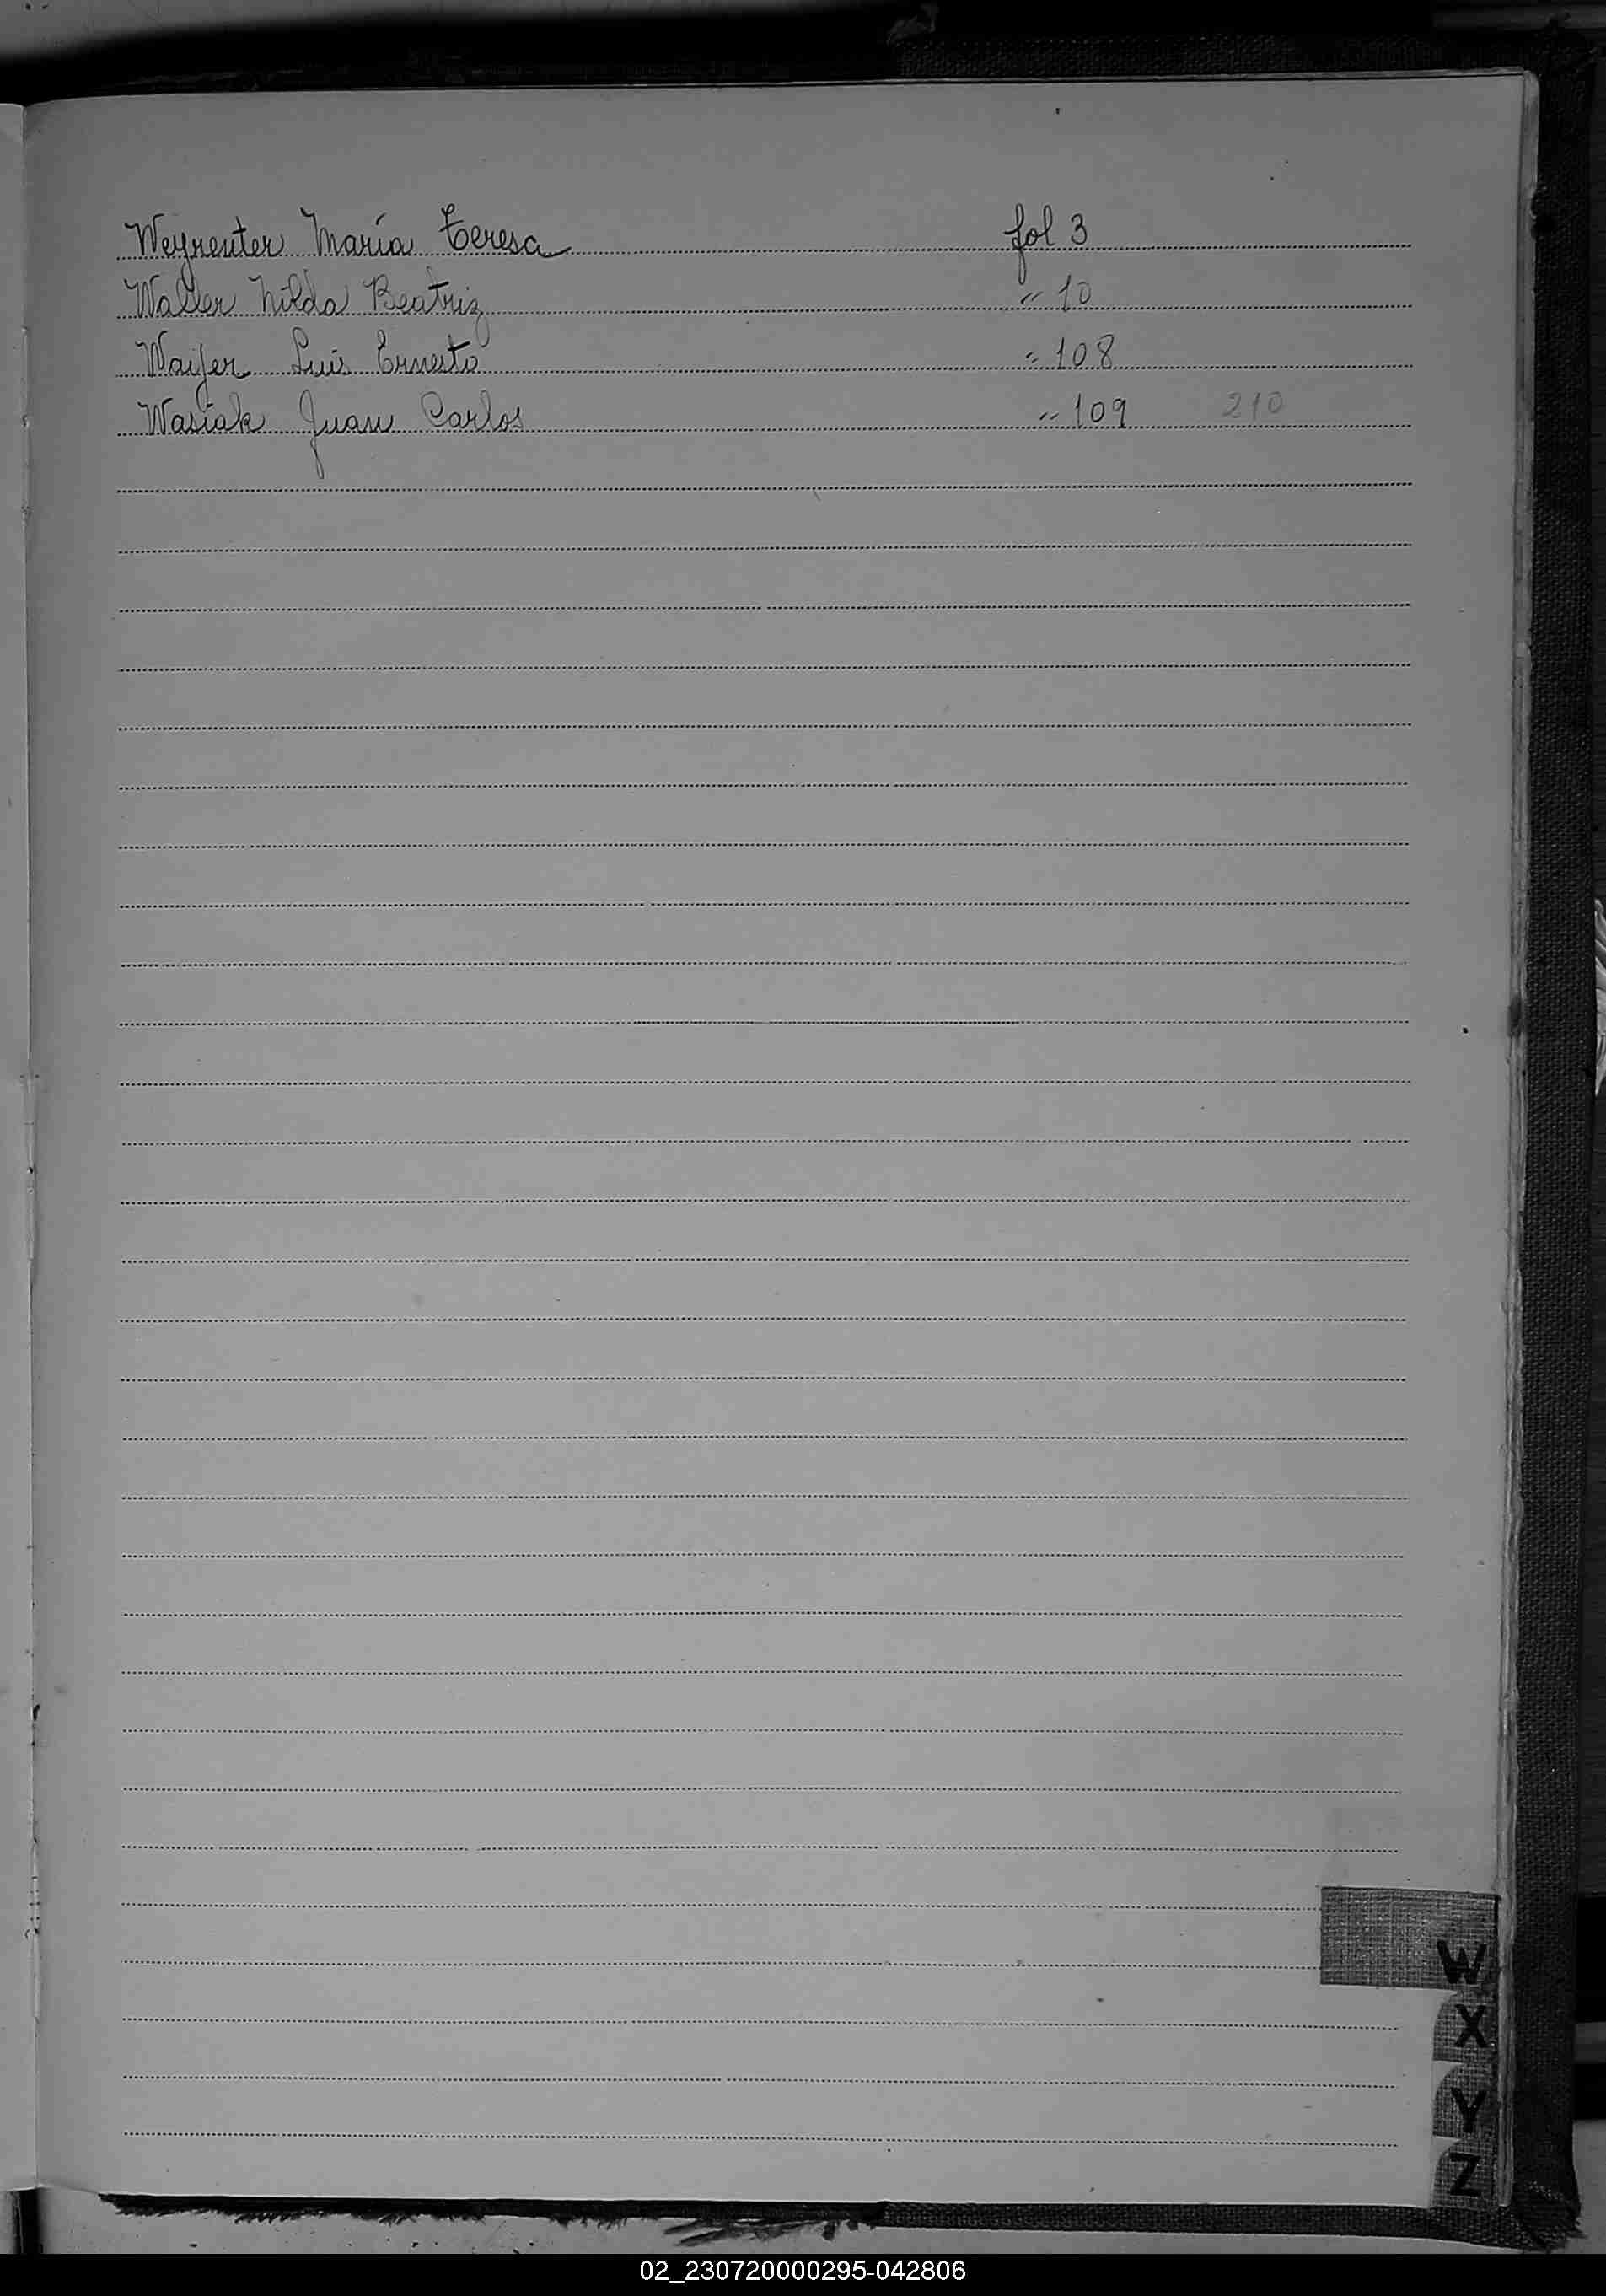 Weyreuter María Teresa fol 3
Waller Nilda Beatriz " 10
Waifer Luis Ernesto " 108
Wasiak Juan Carlos " 109 210
W
X
Y
Z
02_230720000295-042806